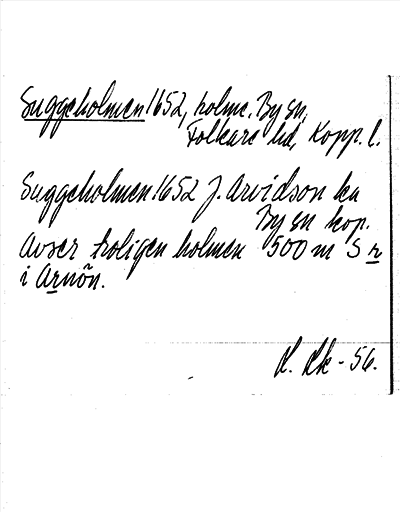 Suggeholmen 1652, holme. By sn,
Folkare hd, Kopp. l.
Suggeholmen 1652 J. Arvidson ka
By sn kop.
Avser troligen holmen 500 m S r
i Arnön.
- 56.